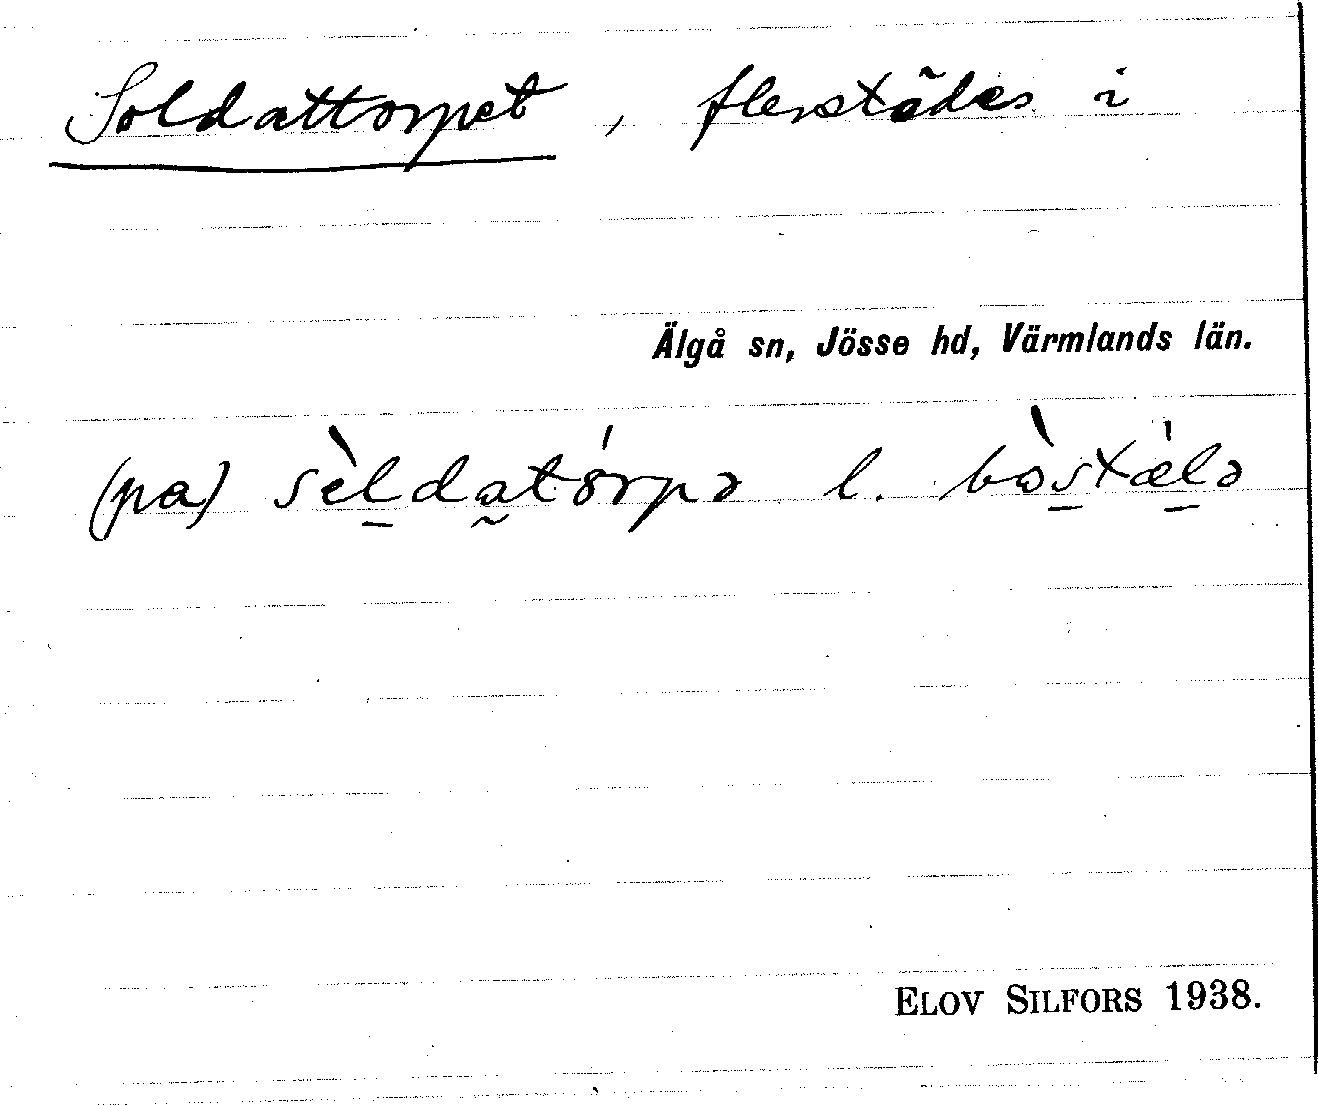 Soldattorpet, flerstädes i
Älgå sn, Jösse hd, Värmlands län.
(pa) sèldatórpə l. bòstèlə
ELOV SILFORS 1938.